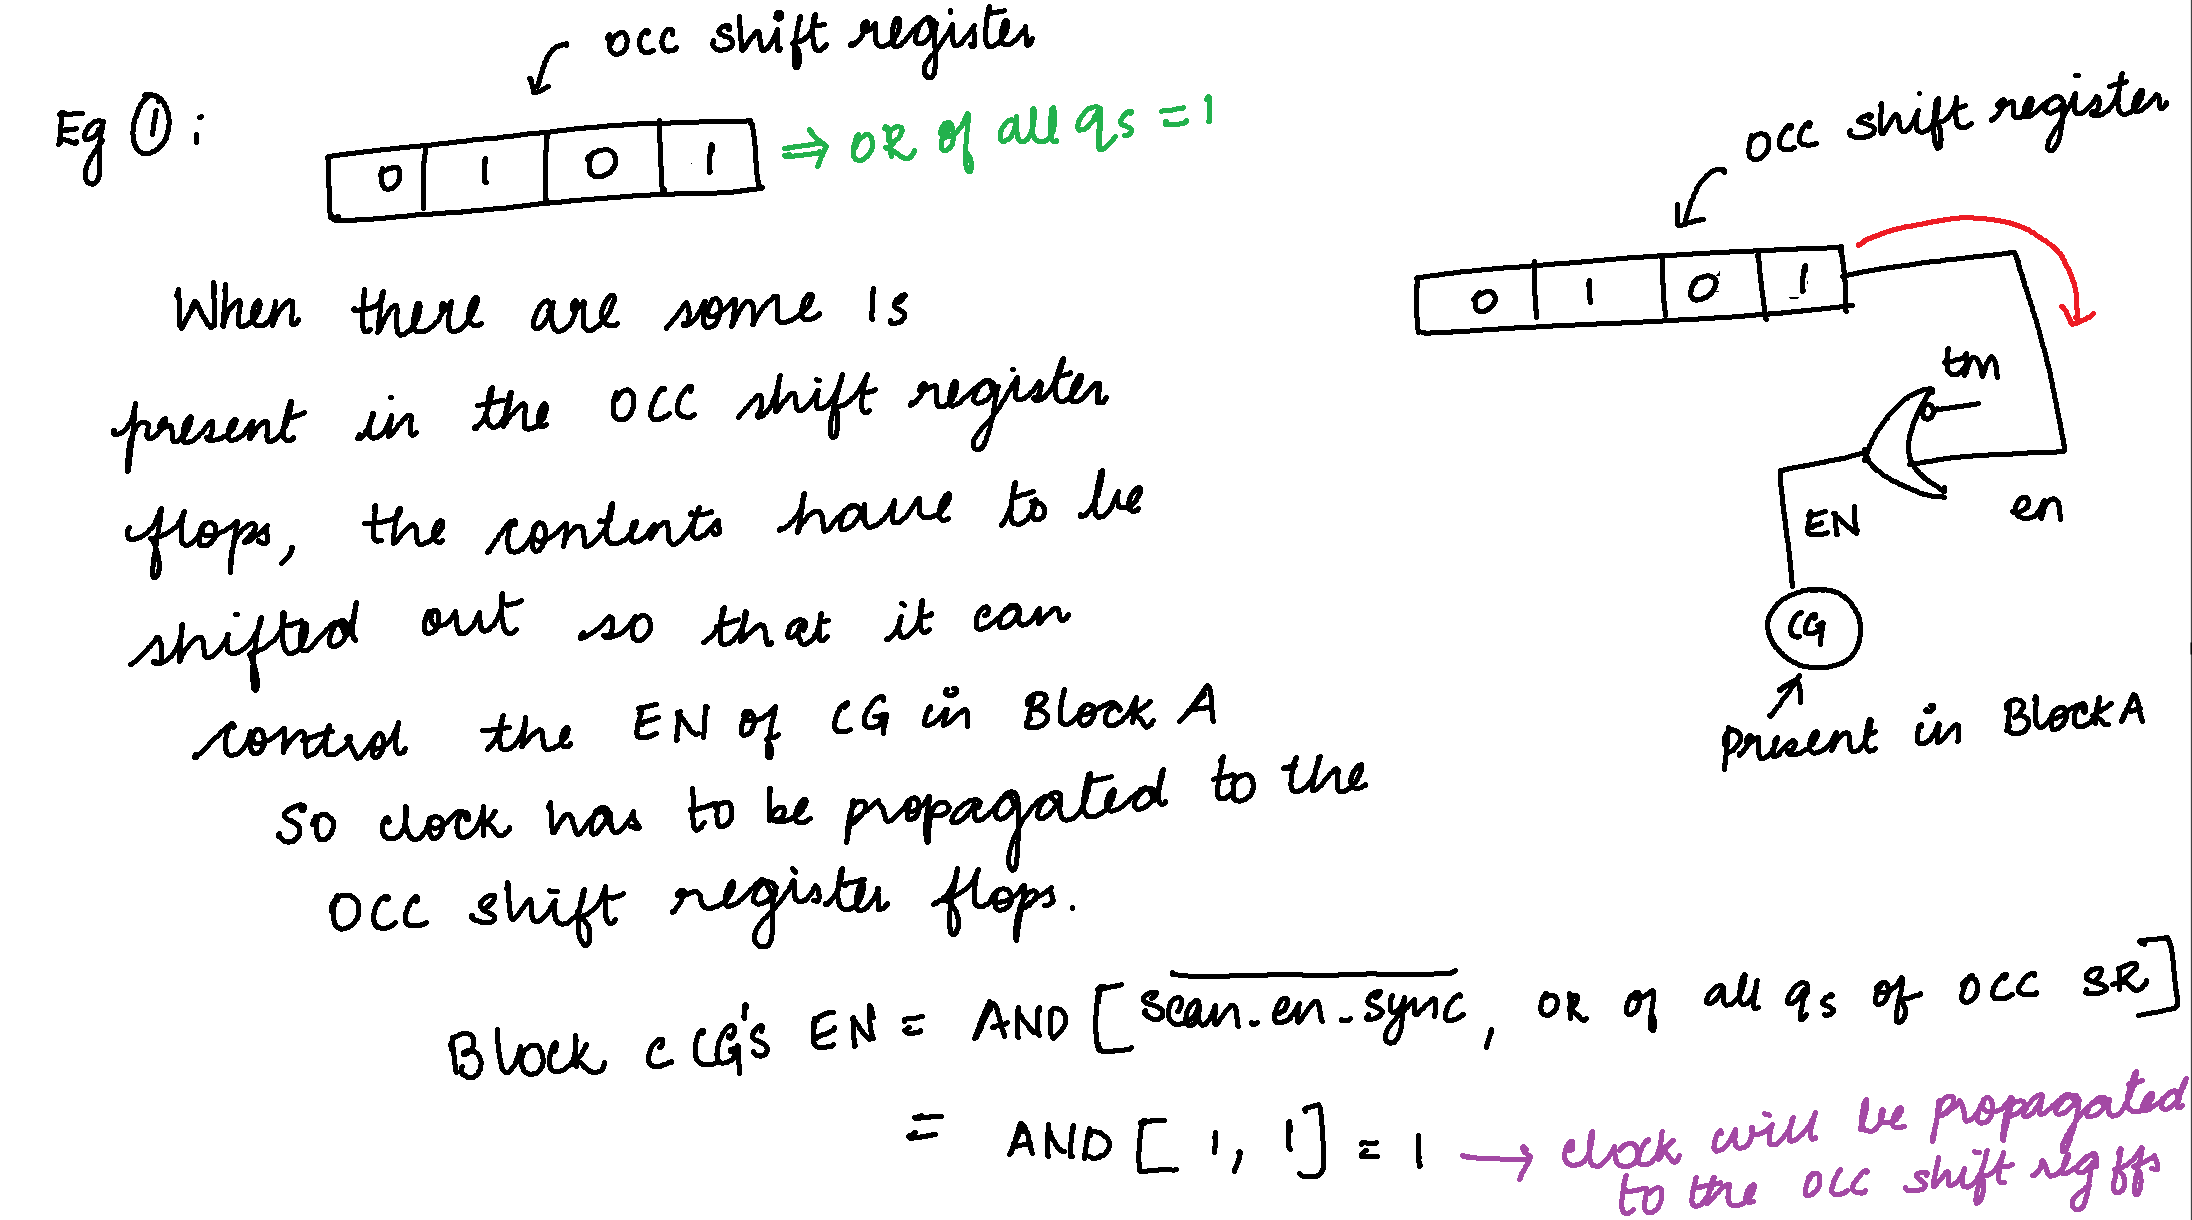 OCC shift register
Eg ①:
0 1 0 1 ⇒ OR of all qs = 1
When there are some 1s
present in the OCC shift register
flops, the contents have to be
shifted out so that it can
control the EN of CG in Block A
So clock has to be propagated to the
OCC shift register flops.
OCC shift register
0 1 0 1
tm
en
EN
CG
Present in Block A
Block C CG's EN = AND [ \overline{scan_en_sync}, OR of all qs of OCC SR]
= AND [ 1, 1] = 1 → clock will be propagated
to the OCC shift reg ffs